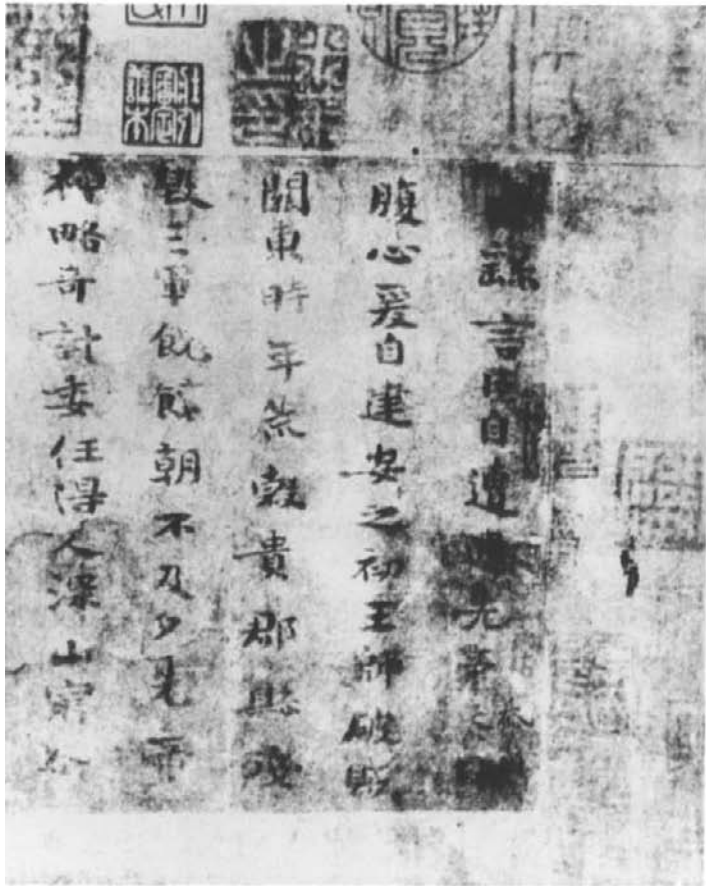 繇言臣自遭遇先帝忝列
腹心爰自建安之初王師破賊
關東時年荒穀貴郡縣殘
毀三軍餽饟朝不及夕先帝
神略奇計委任得人深山窮谷